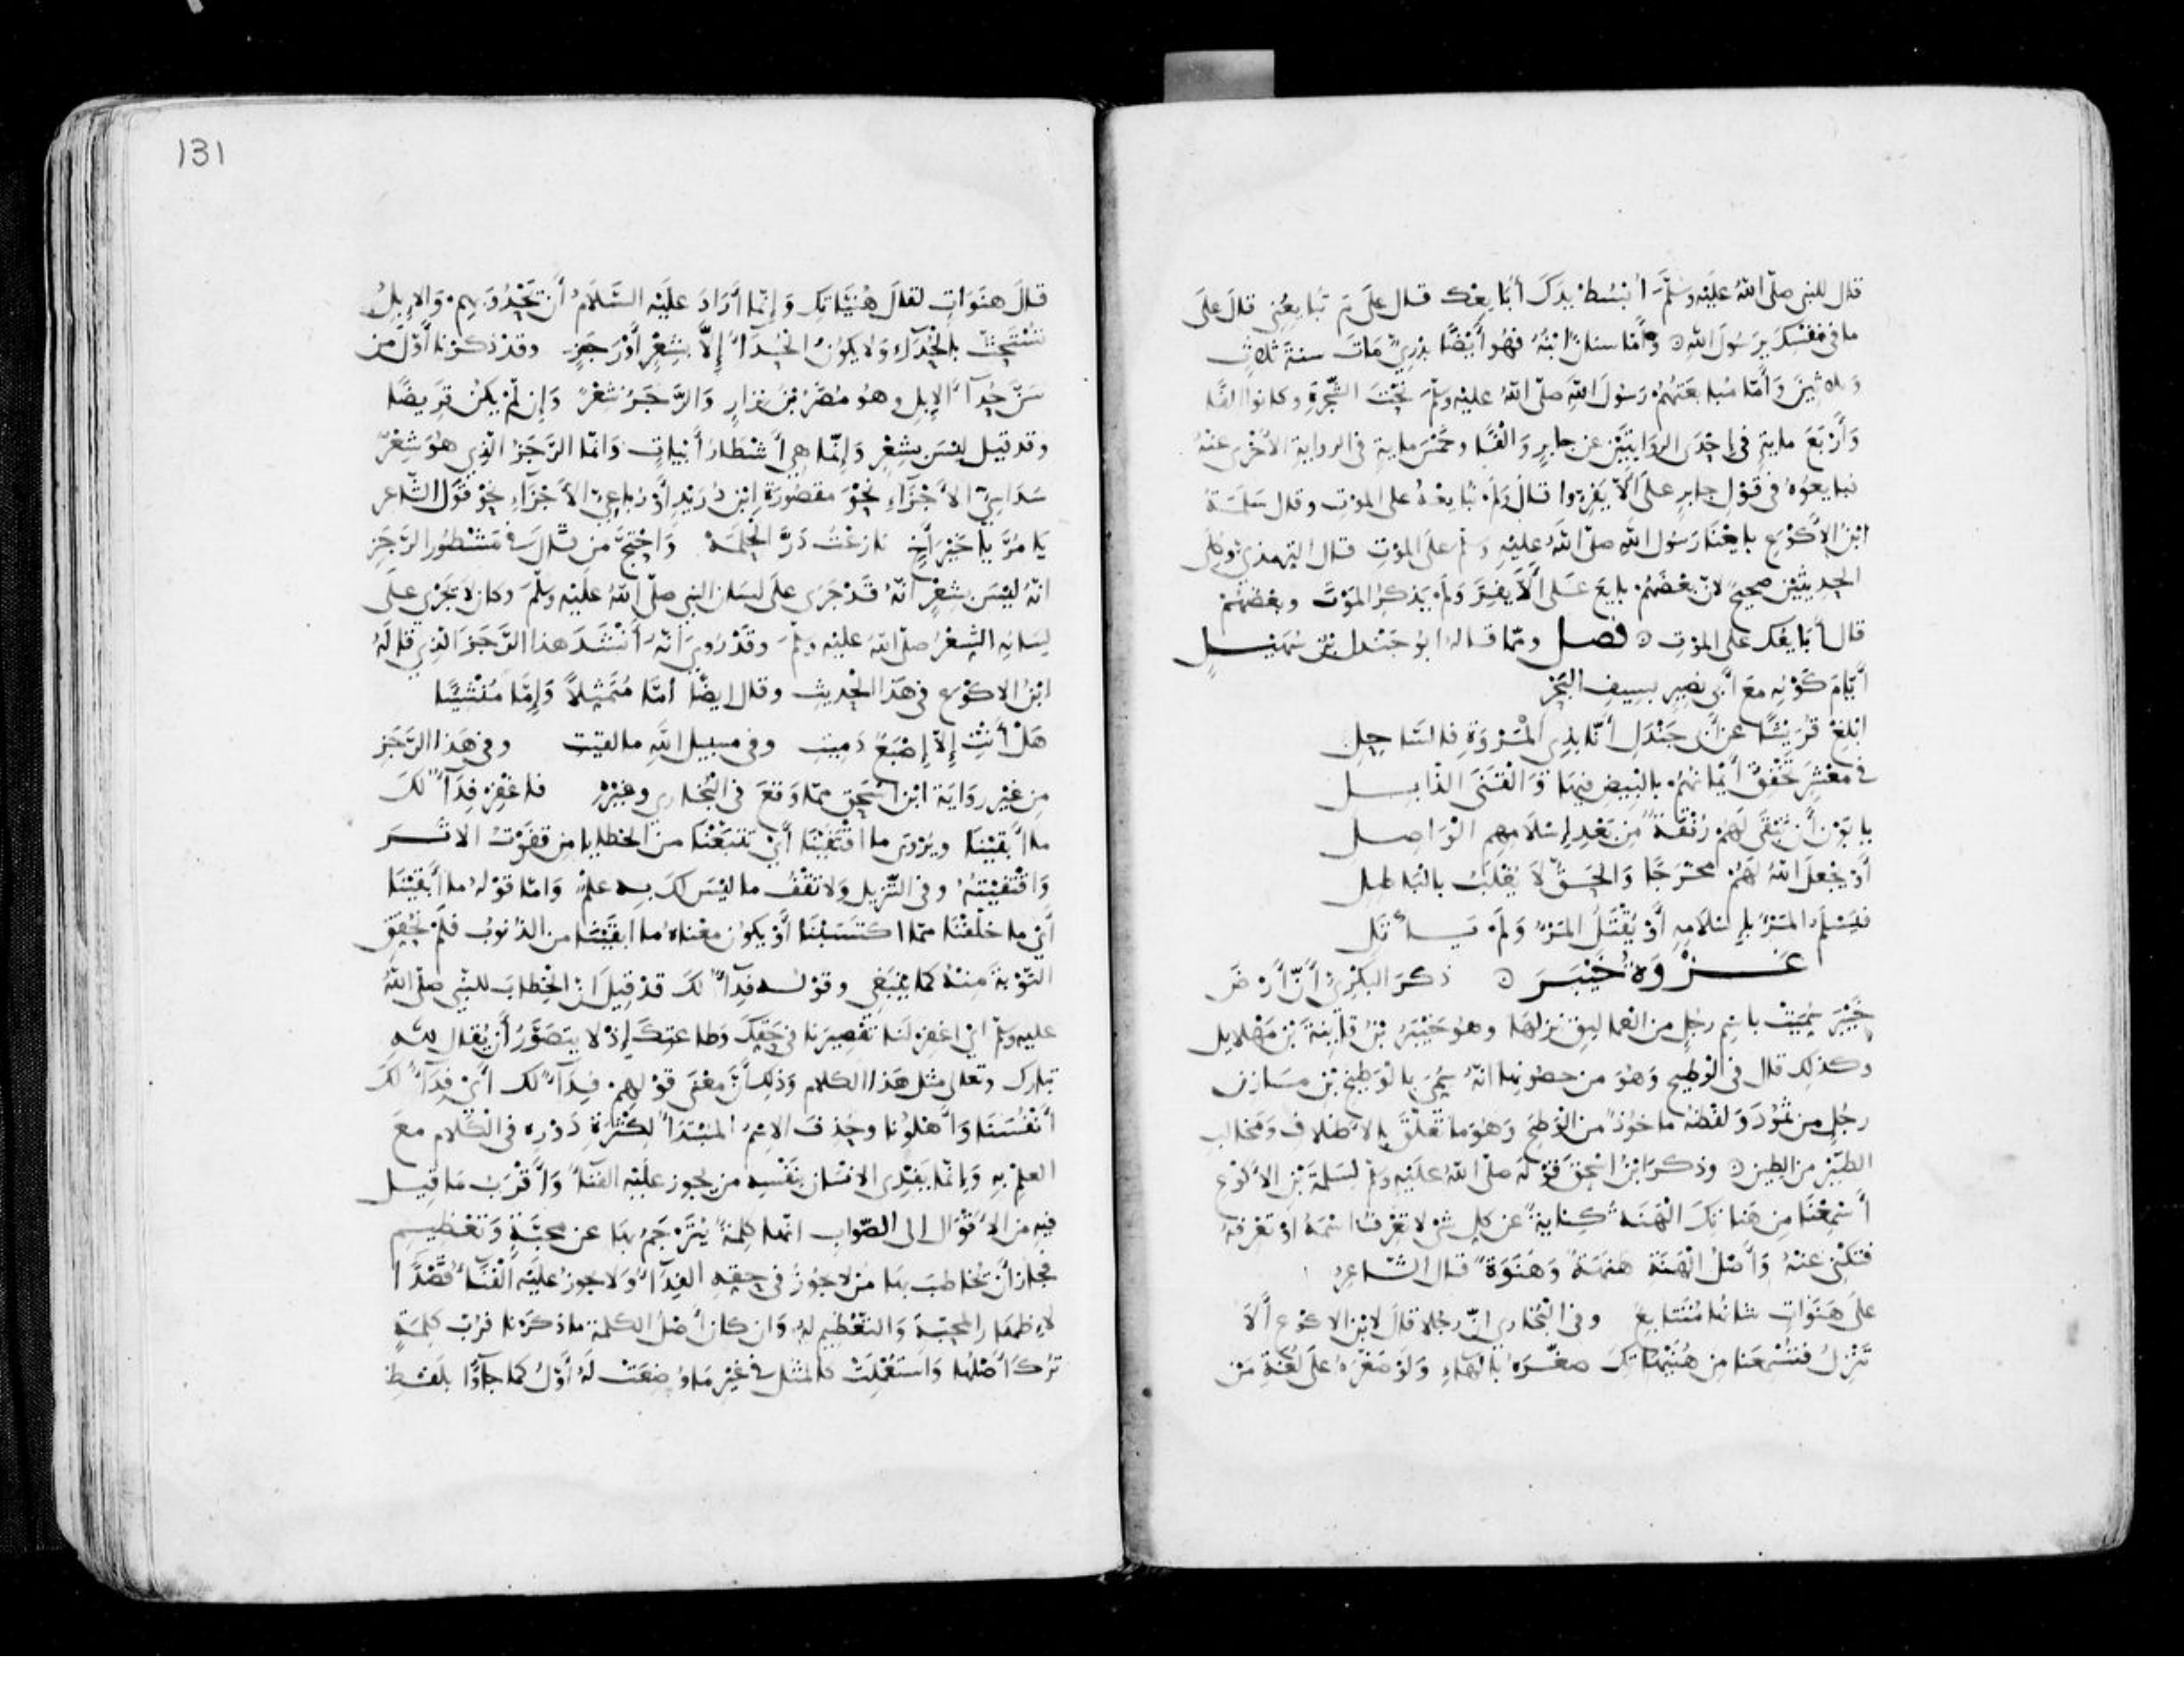 قال للنبي صلى الله عليه وسلم ابسط يدك أبايعك قال على م تبايعني قال على
ما في نفسك يرسول الله وأما سنان ابنه فهو أيضا بدري مات سنة ثلاث
وثلاثين وأما مبايعتهم رسول الله صلى الله عليه وسلم تحت الشجرة وكانوا ألفا
وأربع ماية في إحدى الروايتين عن جابر وألفا وخمس ماية في الرواية الأخرى عنه
فبايعوه في قول جابر على ألا يفروا قال ولم نبايعه على الموت وقال سلمة
ابن الأكوع بايعنا رسول الله صلى الله عليه وسلم على الموت قال الترمذي وكلى
الحديثين صحيح لأن بعضهم بايع على ألا يفر ولم يذكر الموت وبعضهم
قال أبايعك على الموت فصل ومما قاله أبو جندل بن سهيل
أيام كونه مع أبي بصير بسيف البحر
ابلغ قريشا عن أبي جندل أنا بذي المروة فالساحل
في معشر تخفق أيمانهم بالبيض فيها والقنى الذابل
يابون أن تبقى لهم رفقة من بعد إسلامهم الواصل
أو يجعل الله لهم مخرجا والحق لا يغلب بالباطل
فيسلم المرء بإسلامه أو يقتل المرء ولم يأتل
غزوة خيبر ذكر البكري أن أرض
خيبر سميت باسم رجل من العماليق نزلها وهو خيبر بن قانية بن مهلايل
وكذلك قال في الوطيح وهو من حصونها انه سمي بالوطيح بن مازن
رجل من ثمود ولفظه ماخوذ من الوطح وهو ما تعلق بالأظلاف ومخالب
الطير من الطين وذكر ابن اسحق قوله صلى الله عليه وسلم لسلمة بن الأكوع
أسمعنا من هناتك الهنة كناية عن كل شئ لا تعرف اسمه أو تعرفه
فتكني عنه وأصل الهنة هنهة وهنوة قال الشاعر
على هنوات شانها متتابع وفي البخاري ان رجلا قال لابن الاكوع ألا
تنزل فتسمعنا من هنيهاتك صغره بالهاء ولو صغره على لغة من
131
قال هنوات لقال هنياتك وإنما أراد عليه السلام أن تحدو بهم والإبل
تستحث بالحداء ولا يكون الحداء إلا بشعر أو رجز وقد ذكرنا أول من
سن حداء الإبل وهو مضر بن نزار والرجز شعر وإن لم يكن قريضا
وقد قيل ليس بشعر وإنما هي أشطار أبيات وانما الرجز الذي هو شعر
سداسي الأجزاء نحو مقصورة ابن دريد أو رباعي الأجزاء نحو قول الشاعر
يا مر يا خير أخ نازعت در الحلمه واحتج من قال في مشطور الرجز
انه ليس بشعر انه قد جرى على لسان النبي صلى الله عليه وسلم وكان لا يجري على
لسانه الشعر صلى الله عليه وسلم وقد روي انه أنشد هذا الرجز الذي قاله
ابن الاكوع في هذا الحديث وقال ايضا اما متمثلا وإما منشيا
هل أنت إلا إصبع دميت وفي سبيل الله ما لقيت وفي هذا الرجز
من غير رواية ابن اسحق مما وقع في البخاري وغيره فاغفر فداء لك
ما أبقينا ويروى ما اقتفينا أي تتبعنا من الخطايا من قفوت الاثر
واقتفيته وفي التنزيل ولا تقف ما ليس لك به علم واما قوله ما أبقينا
أي ما خلفنا مما اكتسبنا أو يكون معناه ما ابقينا من الذنوب فلم نحقق
التوبة منه كما ينبغي وقوله فداء لك قد قيل ان الخطاب للنبي صلى الله
عليه وسلم اي اغفر لنا تقصيرنا في حقك وطاعتك إذ لا يتصور أن يقال لله
تبارك وتعالى مثل هذا الكلام وذلك أن معنى قولهم فداء لك أي فداء لك
أنفسنا وأهلونا وحذف الاسم المبتدا لكثرة دوره في الكلام مع
العلم به وإنما يفدي الانسان بنفسه من يجوز عليه الفناء وأقرب ما قيل
فيه من الأقوال الى الصواب انها كلمة يترجم بها عن محبة وتعظيم
فجاز أن تخاطب بها من لا يجوز في حقه الفداء ولا يجوز عليه الفناء قصدا
لإظهار المحبة والتعظيم له وان كان أصل الكلمة ما ذكرنا فرب كلمة
ترك أصلها واستعملت كالمثل في غير ما وضعت له أول كما جاؤا بلفظ